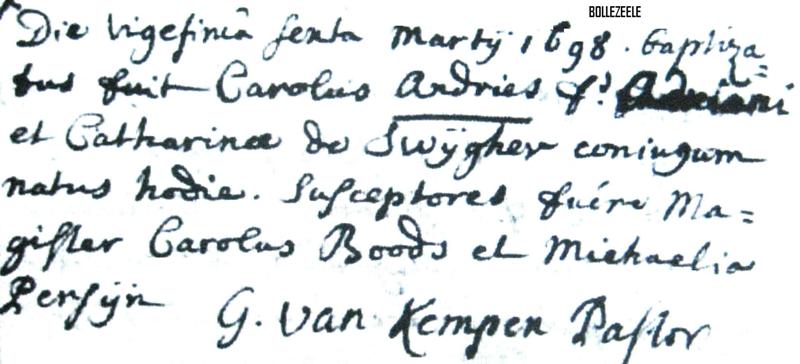 BOLLEZEELE
Die vigesimâ sexta martÿ 1698 . baptiza=
tus fuit Carolus Andries fs Adriani
et Catharinæ de Swÿgher coniugum
natus hodie. Susceptores fuére Ma=
gister Carolus Boods et Michaelia
Persÿn G. van Kempen Pastor